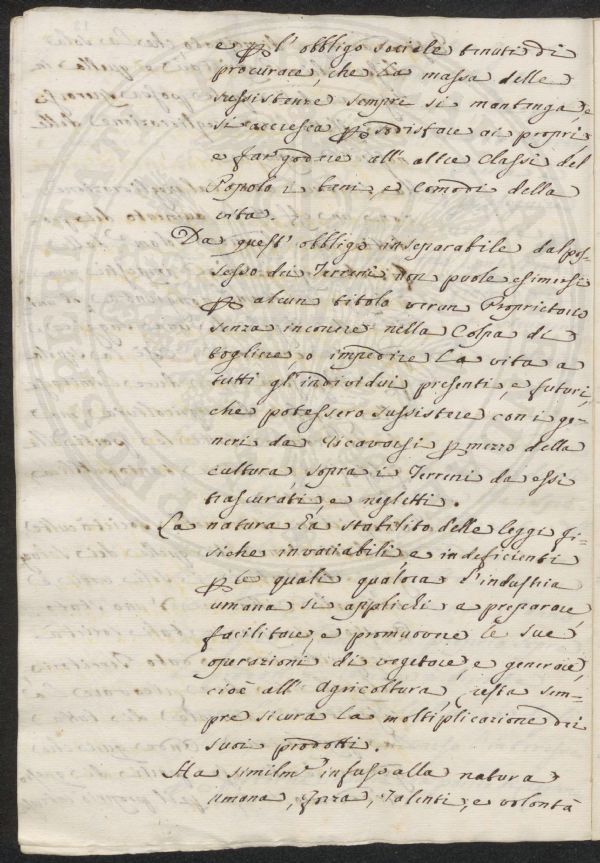 e p l'obbligo sociale tenuti di
procurare, che la massa delle
sussistenze sempre si mantenga, e
si accresca p sodisfare ai proprj
e far godere all'altre Classi del
Popolo i beni, e comodi della
vita.
Da quest'obbligo inseparabile dal pos-
sesso dei Terreni non puole esimersi
p alcun titolo verun Proprietario
senza incorrere nella Colpa di
togliere, o impedire la vita a
tutti gl'individui presenti, e futuri,
che potessero sussistere con i ge-
neri da ricavarsi p mezzo della
cultura, sopra i Terreni da essi
trascurati, e negletti.
La natura ha stabilito delle leggi fi-
siche invariabili e indeficienti
p le quali qualora l'industria
umana si applichi a preparare,
facilitare, e promuovere le sue
operazioni di vegetare, e generare,
cioè all'Agricoltura, resta sem-
pre sicura la moltiplicazione dei
suoi prodotti.
Ha similmte infuso alla natura
umana, forza, Talenti, e volontà